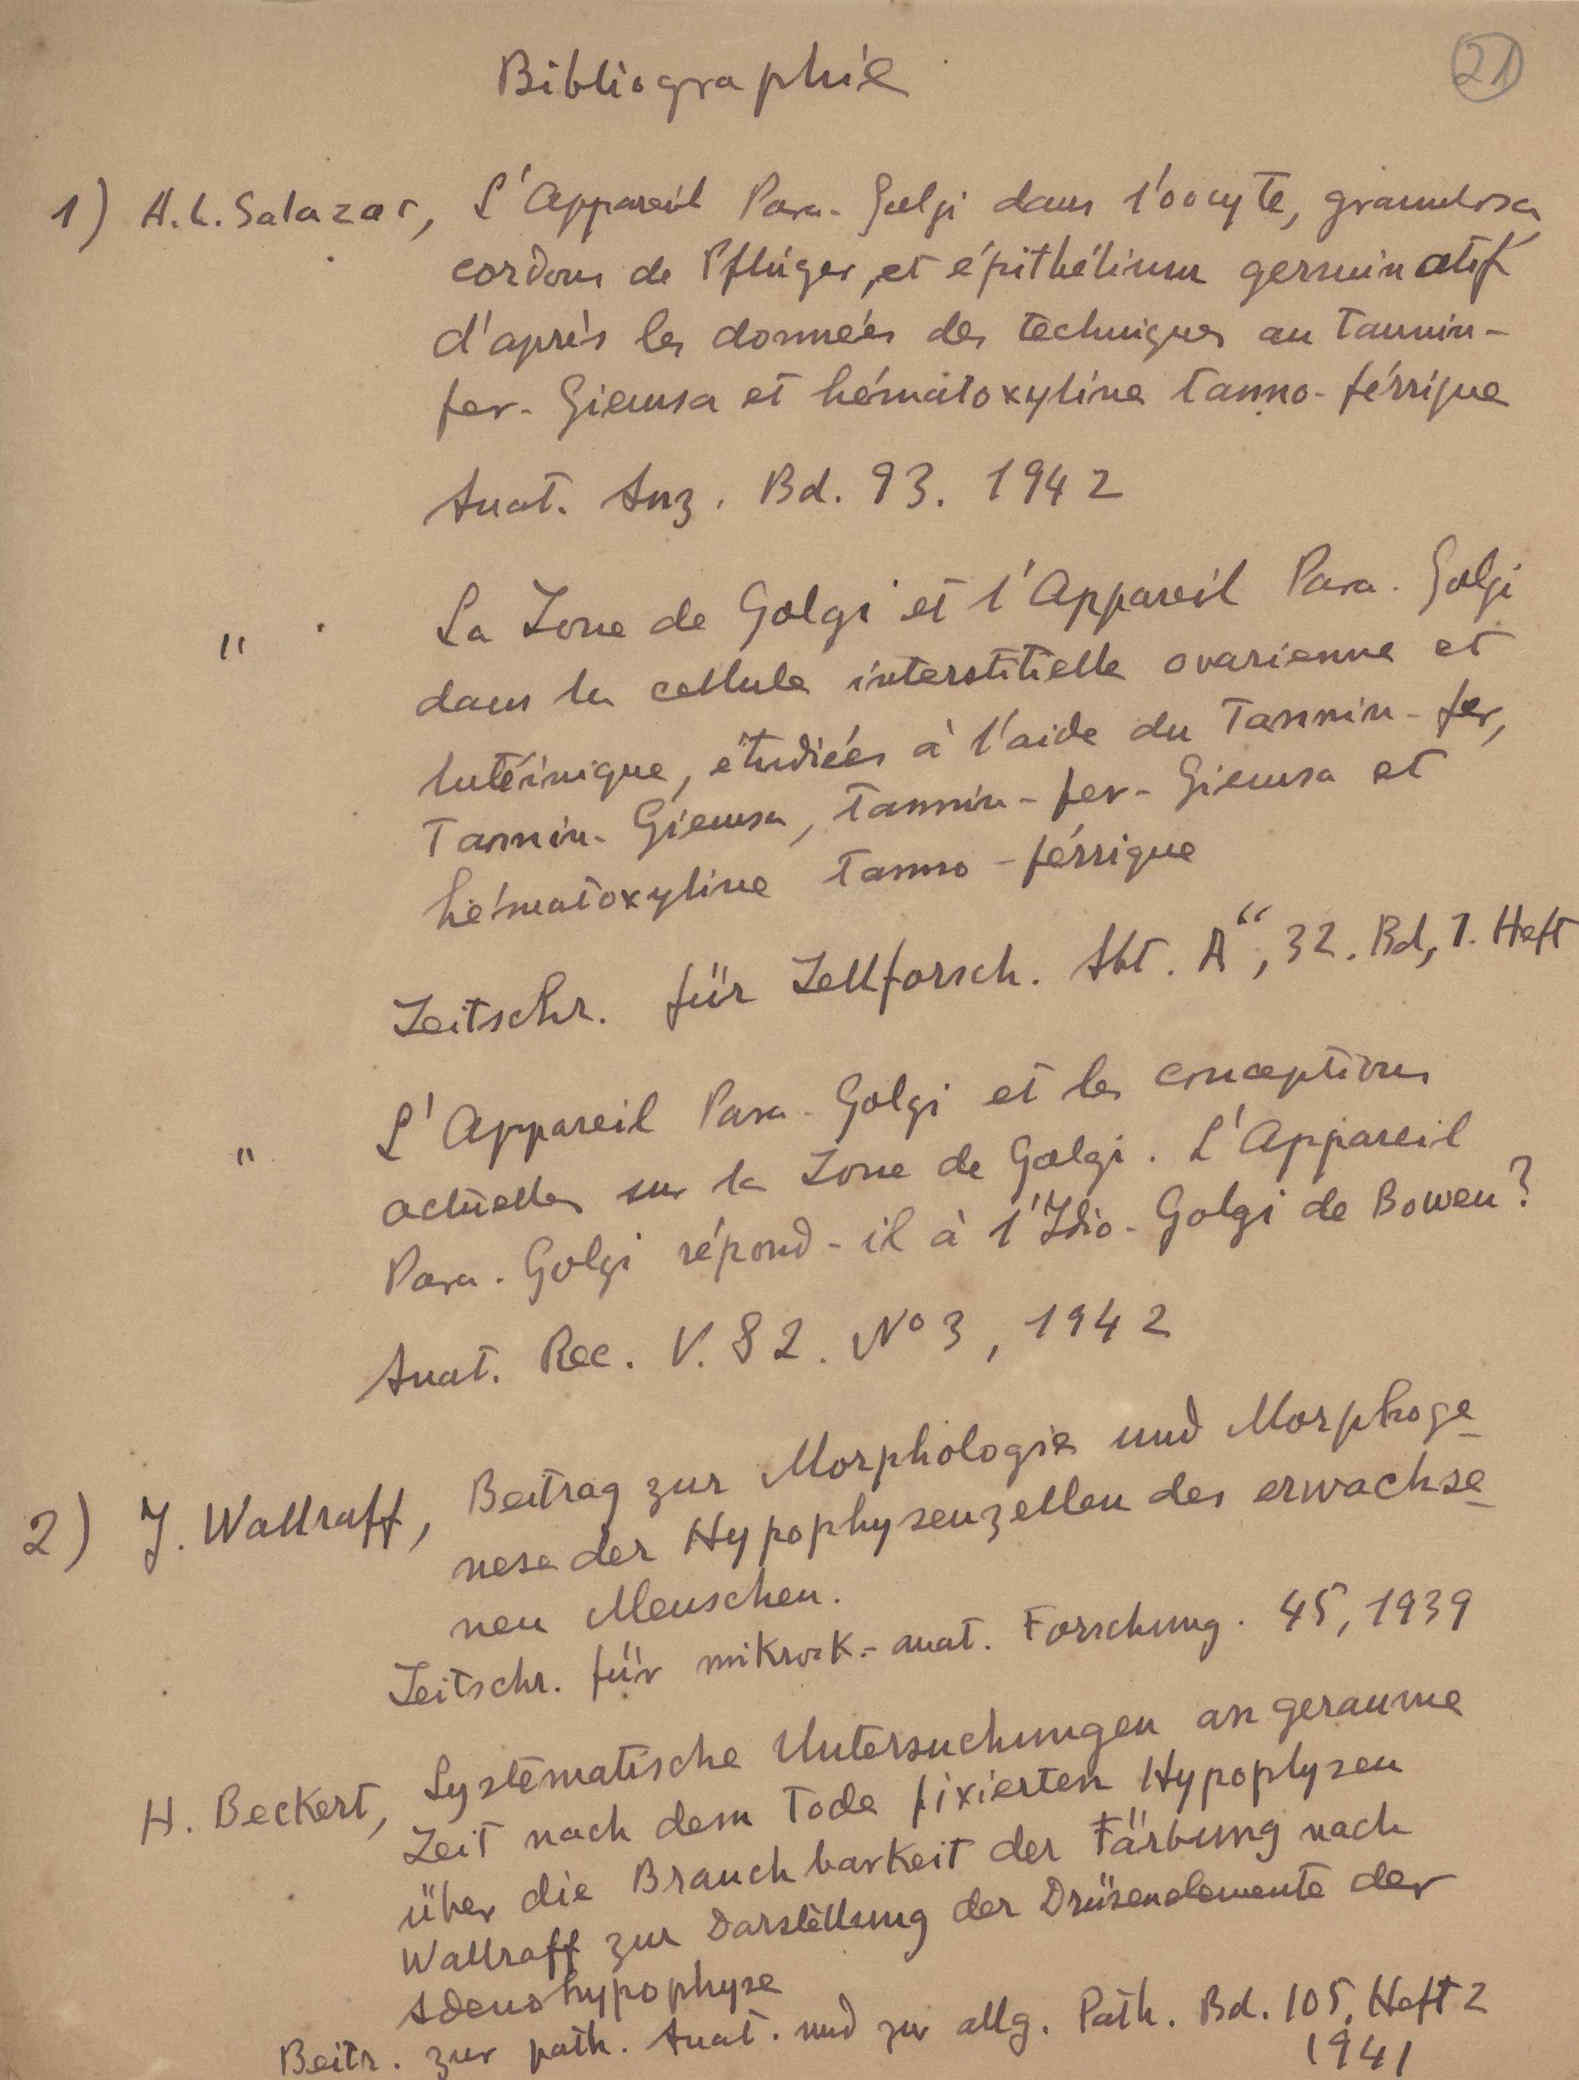 21
Bibliographie
1) A.L. Salazar, L'Appareil Para-Golgi dans l'oocyte, granulosa,
cordons de Pflüger, et épithélium germinatif
d'après les données des techniques au tannin-
fer-Giemsa et hématoxyline tanno-férrique
Anat. Anz. Bd. 93. 1942
" La Zone de Golgi et l'Appareil Para-Golgi
dans la cellule interstitielle ovarienne et
lutéinique, étudiées à l'aide du Tannin-fer,
Tannin-Giemsa, Tannin-fer-Giemsa et
hématoxyline tanno-férrique
Zeitschr. für Zellforsch. Abt. A“, 32. Bd, 1. Heft
" L'Appareil Para-Golgi et les conceptions
actuelles sur la Zone de Golgi. L'Appareil
Para-Golgi répond-il à l'Idio-Golgi de Bowen?
Anat. Rec. V. 82. No 3, 1942
2) J. Wallraff, Beitrag zur Morphologie und Morphoge-
nese der Hypophysenzellen des erwachse-
nen Menschen.
Zeitschr. für mikrosk.-anat. Forschung. 45, 1939
H. Beckert, Systematische Untersuchungen an geraume
Zeit nach dem Tode fixierten Hypophysen
über die Brauchbarkeit der Färbung nach
Wallraff zur Darstellung der Drüsenelemente der
Adenohypophyse
Beitr. zur path. Anat. und zur allg. Path. Bd. 105, Heft 2
1941